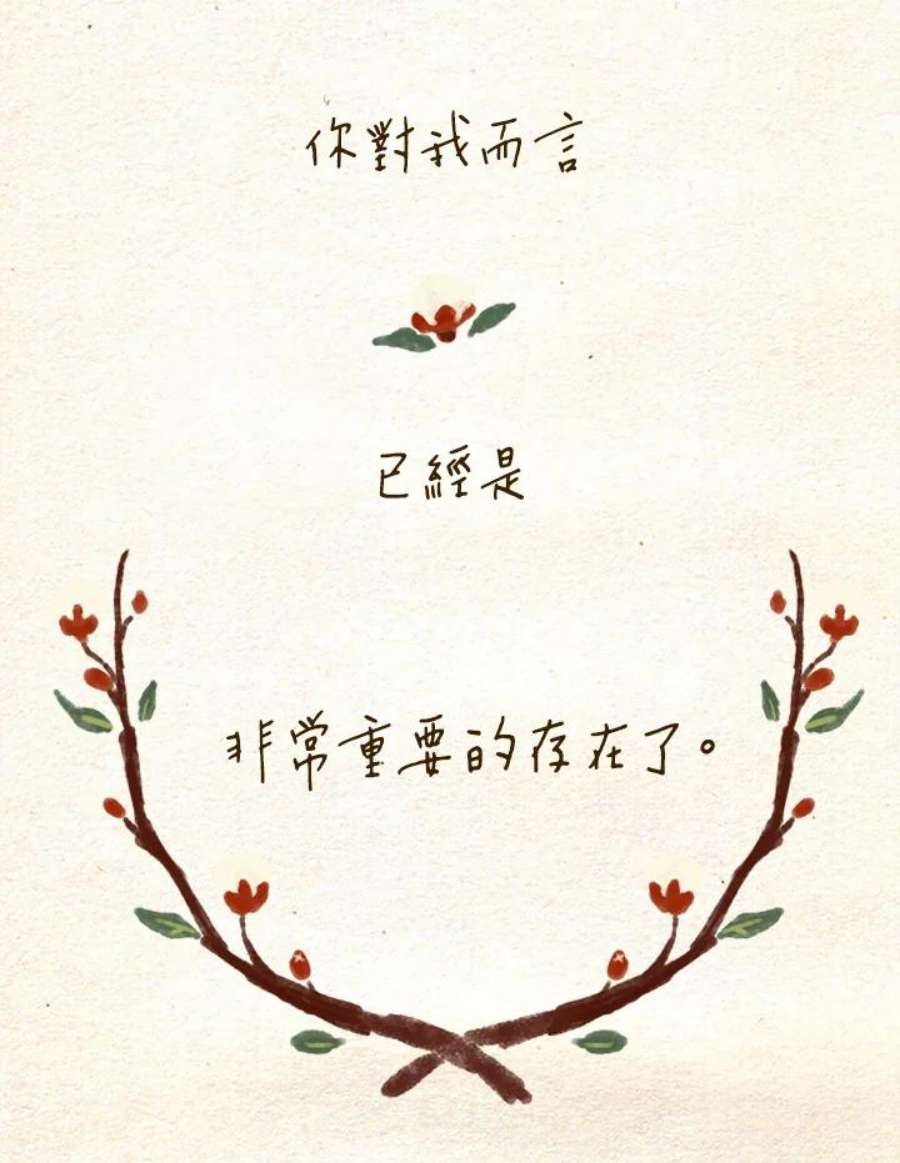 你對我而言
已經是
非常重要的存在了。